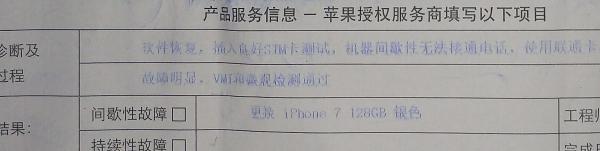 产品服务信息 – 苹果授权服务商填写以下项目
诊断及
过程
软件恢复，插入良好SIM卡测试，机器间歇性无法接通电话，使用联通卡
故障明显，VMI和装观检测通过
间歇性故障 □ 更换 iPhone 7 128GB 银色 工程师
结果:
持续性故障 □ 完成日